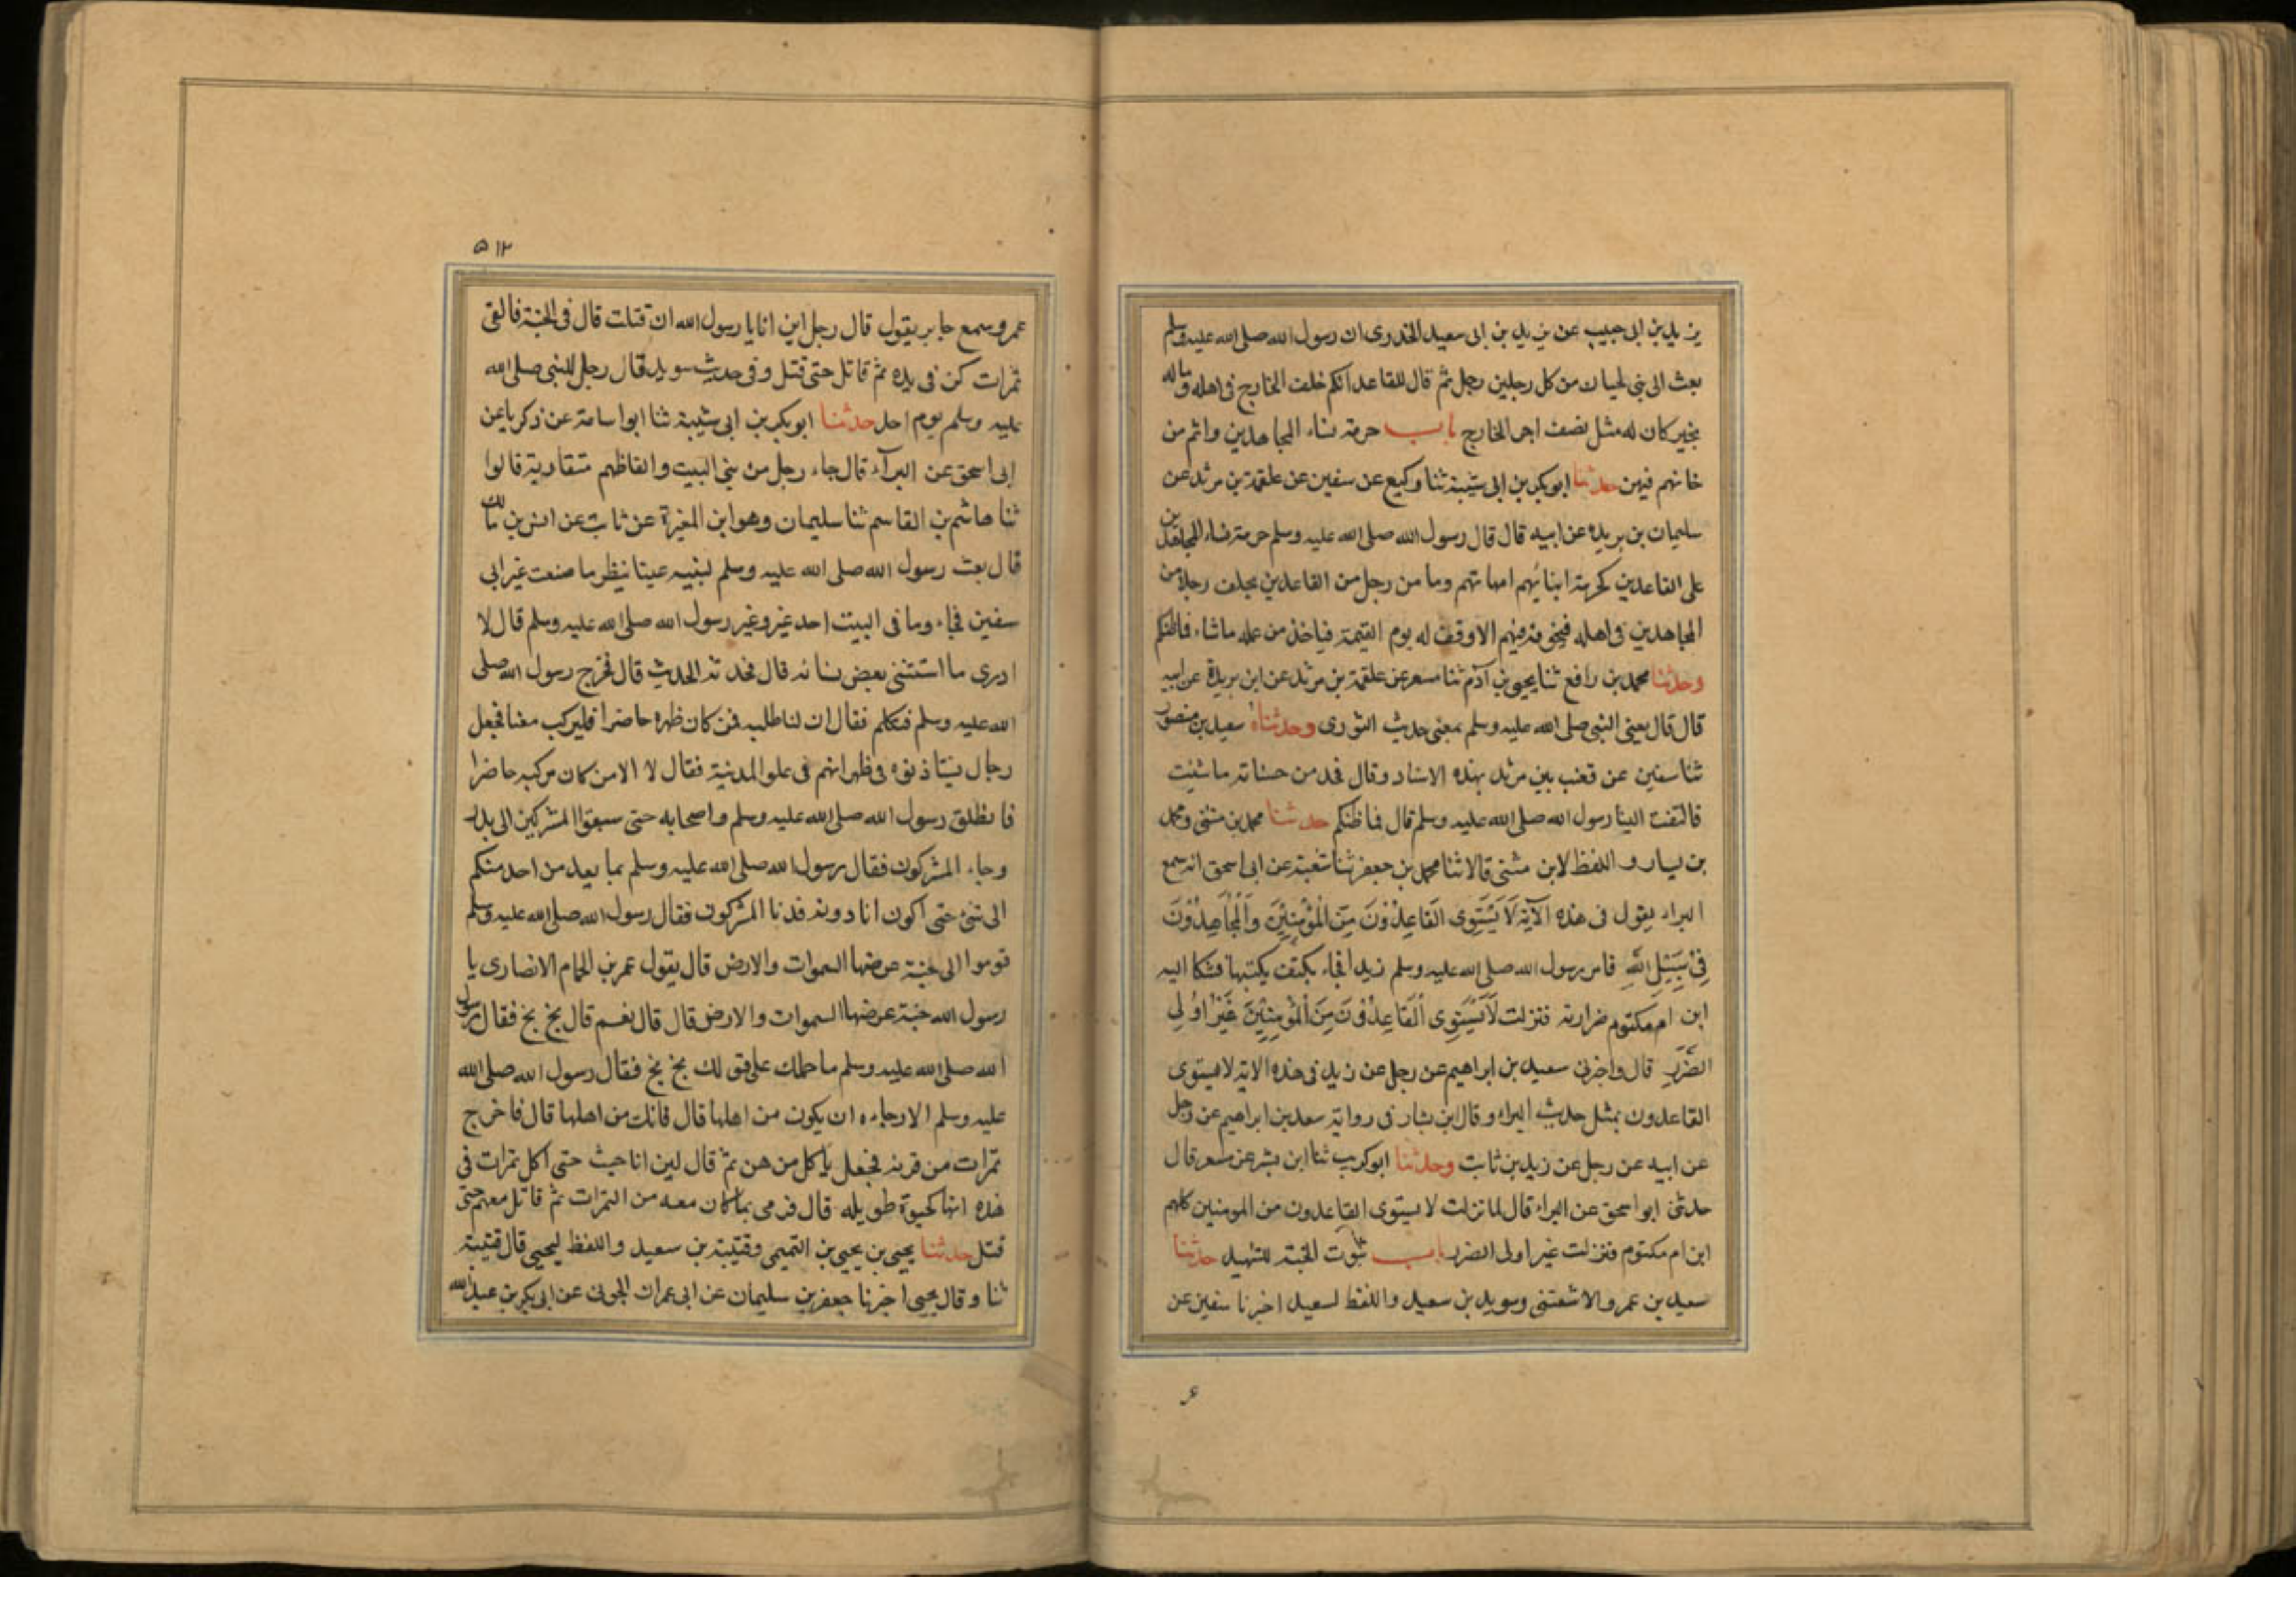 يزيد بن ابى حبيب عن يزيد بن ابى سعيد الخدرى ان رسول الله صلى الله عليه وسلم
بعث الى بنى لحيان من كل رجلين رجل ثم قال للقاعد ايكم خلف الخارج فى اهله وماله
بخير كان له مثل نصف اجر الخارج باب حرمة نساء المجاهدين واثم من
خانهم فيهن حدثنا ابو بكر بن ابى شيبة ثنا وكيع عن سفين عن علقمة بن مرثد عن
سليمان بن بريده عن ابيه قال قال رسول الله صلى الله عليه وسلم حرمة نساء المجاهدين
على القاعدين كحرمة ابنائهم امهاتهم وما من رجل من القاعدين يخلف رجلا من
المجاهدين فى اهله فيخونه فيهم الا وقف له يوم القيمة فياخذ من عمله ماشاء فاظنكم
وحدثنا محمد بن رافع ثنا يحيى بن آدم ثنا مسعر عن علقمة بن مرثد عن ابن بريدة عن ابيه
قال قال يعنى النبى صلى الله عليه وسلم بمعنى حديث الثورى وحدثناه سعيد بن منصور
ثنا سفين عن قعنب بن مرثد بهذه الاسناد وقال فخد من حسناته ما شئت
فالتفت الينا رسول الله صلى الله عليه وسلم قال فما ظنكم حدثنا محمد بن مثنى ومحمد
بن بسار و اللفظ لابن مثنى قالا ثنا محمد بن جعفر ثنا شعبة عن ابى اسحق انه سمع
البراء يقول فى هذه الآية لَا يَسْتَوِى القَاعِدُوْنَ مِنَ الْمُؤْمِنِيْنَ وَالْمُجَاهِدُوْنَ
فِىْ سَبِيْلِ اللهِ فامر رسول الله صلى الله عليه وسلم زيدا فجاء بكتف يكتبها فشكا اليه
ابن ام مكتوم ضرارته فنزلت لَا يَسْتَوِى القَاعِدُوْنَ مِنَ الْمُؤْمِنِيْنَ غَيْرُ اُولِى
الضَّرَرِ قال واخبرنى سعيد بن ابراهيم عن رجل عن زيد فى هذه الاية لا يستوى
القاعدون بمثل حديث البراء وقال ابن بشار فى رواية سعد بن ابراهيم عن رجل
عن ابيه عن رجل عن زيد بن ثابت وحدثنا ابو كريب ثنا ابن بشر عن مسعر قال
حدثنى ابو اسحق عن البراء قال لما نزلت لا يستوى القاعدون من المومنين كلهم
ابن ام مكتوم فنزلت غير اولى الضرر باب ثبوت الجنة للشهيد حدثنا
سعيد بن عمرو الاشعتنى وسويد بن سعيد واللفظ لسعيد اخبرنا سفين عن
۵۱۲
عمرو سمع جابر يقول قال رجل اين انا يا رسول الله ان قتلت قال فى الجنة فالقى
ثمرات كن فى يده ثم قاتل حتى قتل وفى حديث سويد قال رجل للنبى صلى الله
عليه وسلم يوم احد حدثنا ابو بكر بن ابى شيبة ثنا ابو اسامة عن زكريا عن
ابى اسحق عن البرآء قال جاء رجل من بنى البيت والفاظهم متقاربة قالوا
ثنا هاشم بن القاسم ثنا سليمان وهو ابن المغيرة عن ثابت عن انس بن مالك
قال بعث رسول الله صلى الله عليه وسلم عينا ينظر ما صنعت غير ابى
سفين فجاء وما فى البيت احد غيرى وغير رسول الله صلى الله عليه وسلم قال لا
ادرى ما استثنى بعض نسائه قال فحدثه الحديث قال فخرج رسول الله صلى
الله عليه وسلم فتكلم فقال ان لنا طلبه فمن كان ظهره حاضرا فليركب معنا فجعل
رجال يستاذنوه فى ظهرانهم فى علو المدينة فقال لا الا من كان مركبه حاضرا
فانطلق رسول الله صلى الله عليه وسلم واصحابه حتى سبقوا المشركين الى بدر
وجاء المشركون فقال رسول الله صلى الله عليه وسلم احد منكم
الى شئ حتى اكون انا دونه فدنا المشركون فقال رسول الله صلى الله عليه وسلم
قوموا الى جنة عرضها السموات والارض قال يقول عمر بن الحمام الانصارى يا
رسول الله جنة عرضها السموات والارض قال قال نعم قال بخ بخ فقال رسول
الله صلى الله عليه وسلم ما حملك على قولك بخ بخ فقال رسول الله صلى الله
عليه وسلم الا رجاءه ان يكون من اهلها قال فانك من اهلها قال فاخرج
تمرات من قرنه فجعل ياكل من هن ثم قال لين انا حيت حتى اكل تمرات فى
هذه انها لحيوة طويله قال فرمى بما كان معه من التمرات ثم قاتل معهم حتى
قتل حدثنا يحيى بن يحيى بن التميمى وقتيبة بن سعيد واللفظ ليحيى قال قتيبة
ثنا وقال يحيى اخبرنا جعفر بن سليمان عن ابى عمران الجونى عن ابى بكر بن عبد الله